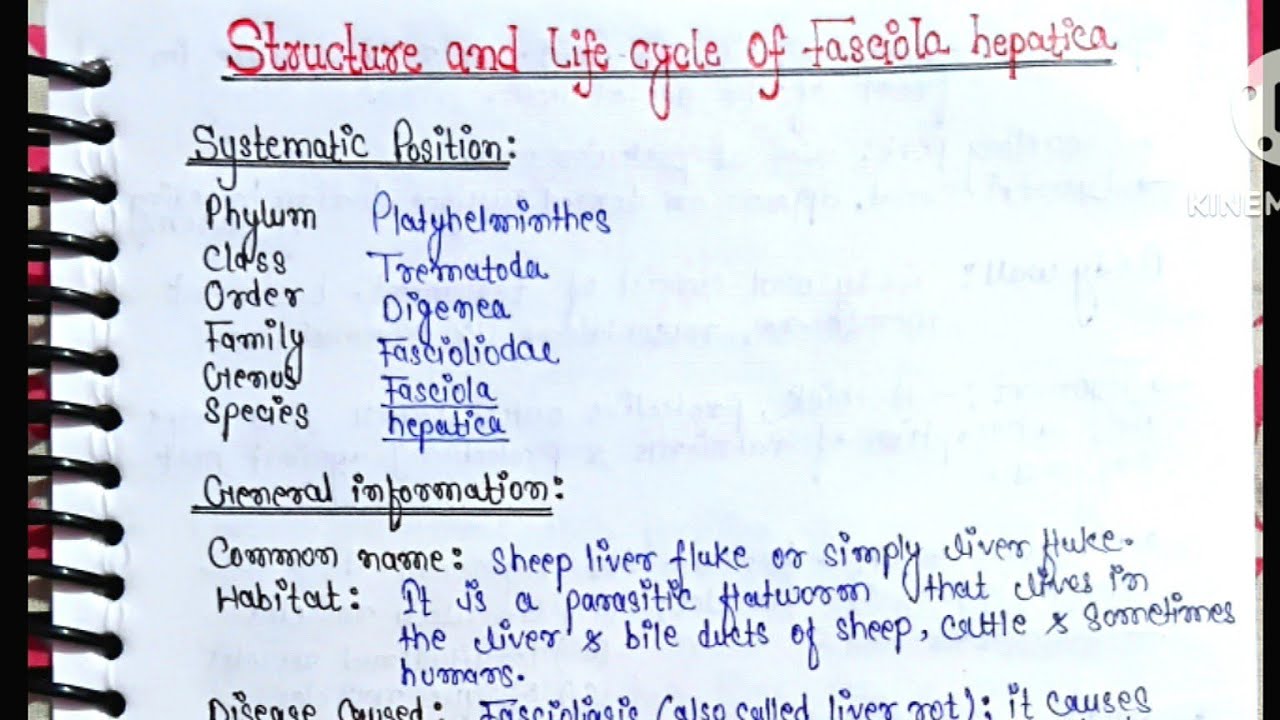 Structure and Life cycle of Fasciola hepatica
Systematic Position:
Phylum Platyhelminthes
Class Trematoda
Order Digenea
Family Fascioliodae
Genus Fasciola
Species hepatica
General information:
Common name: Sheep liver fluke or simply liver fluke.
Habitat: It is a parasitic flatworm that lives in
the liver & bile ducts of sheep, cattle & sometimes
humans.
Disease Caused: Fascioliasis (also called liver rot): it causes
KINEM